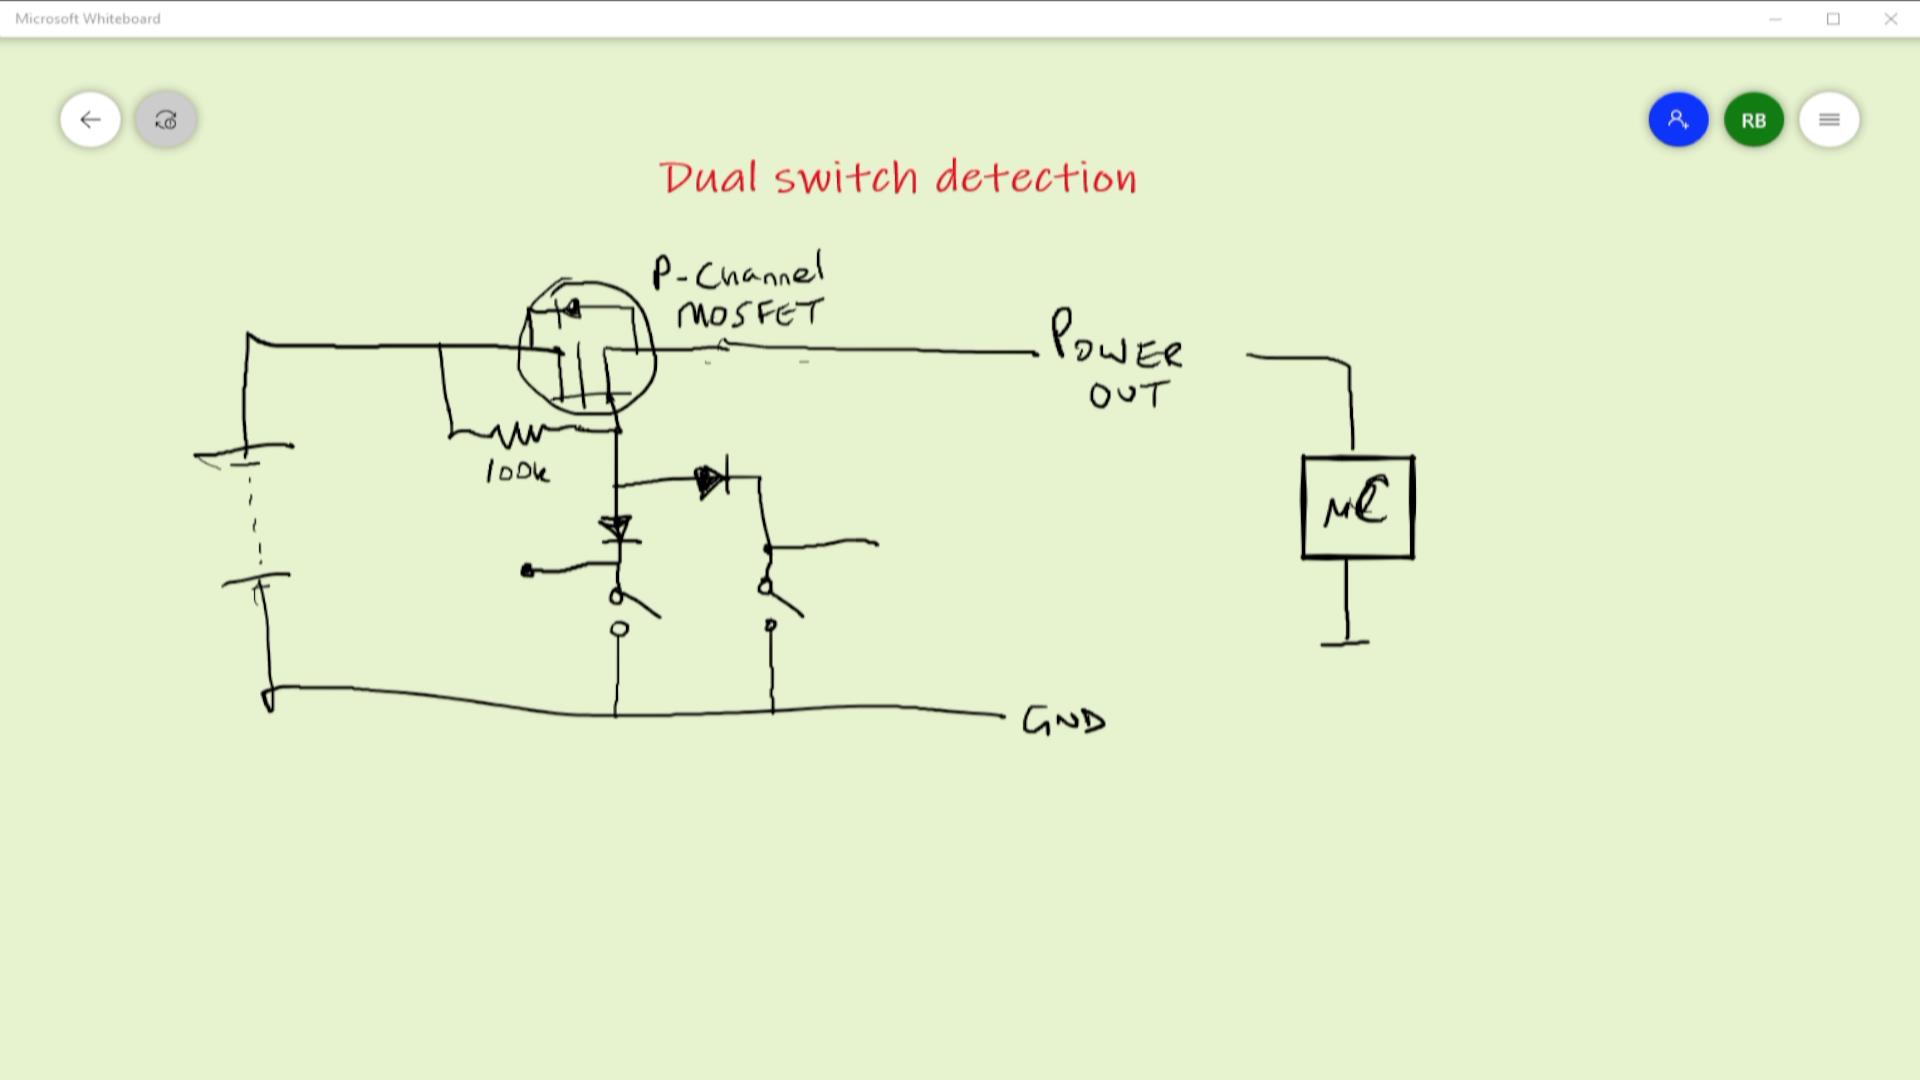 Microsoft Whiteboard
RB
Dual switch detection
P-Channel
MOSFET
POWER
OUT
100k
μC
GND